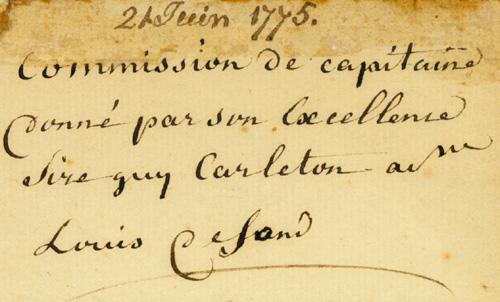 21 Juin 1775.
Commission de capitaine
Donné par son Excellense
Sire guy Carleton a Mr
Louis